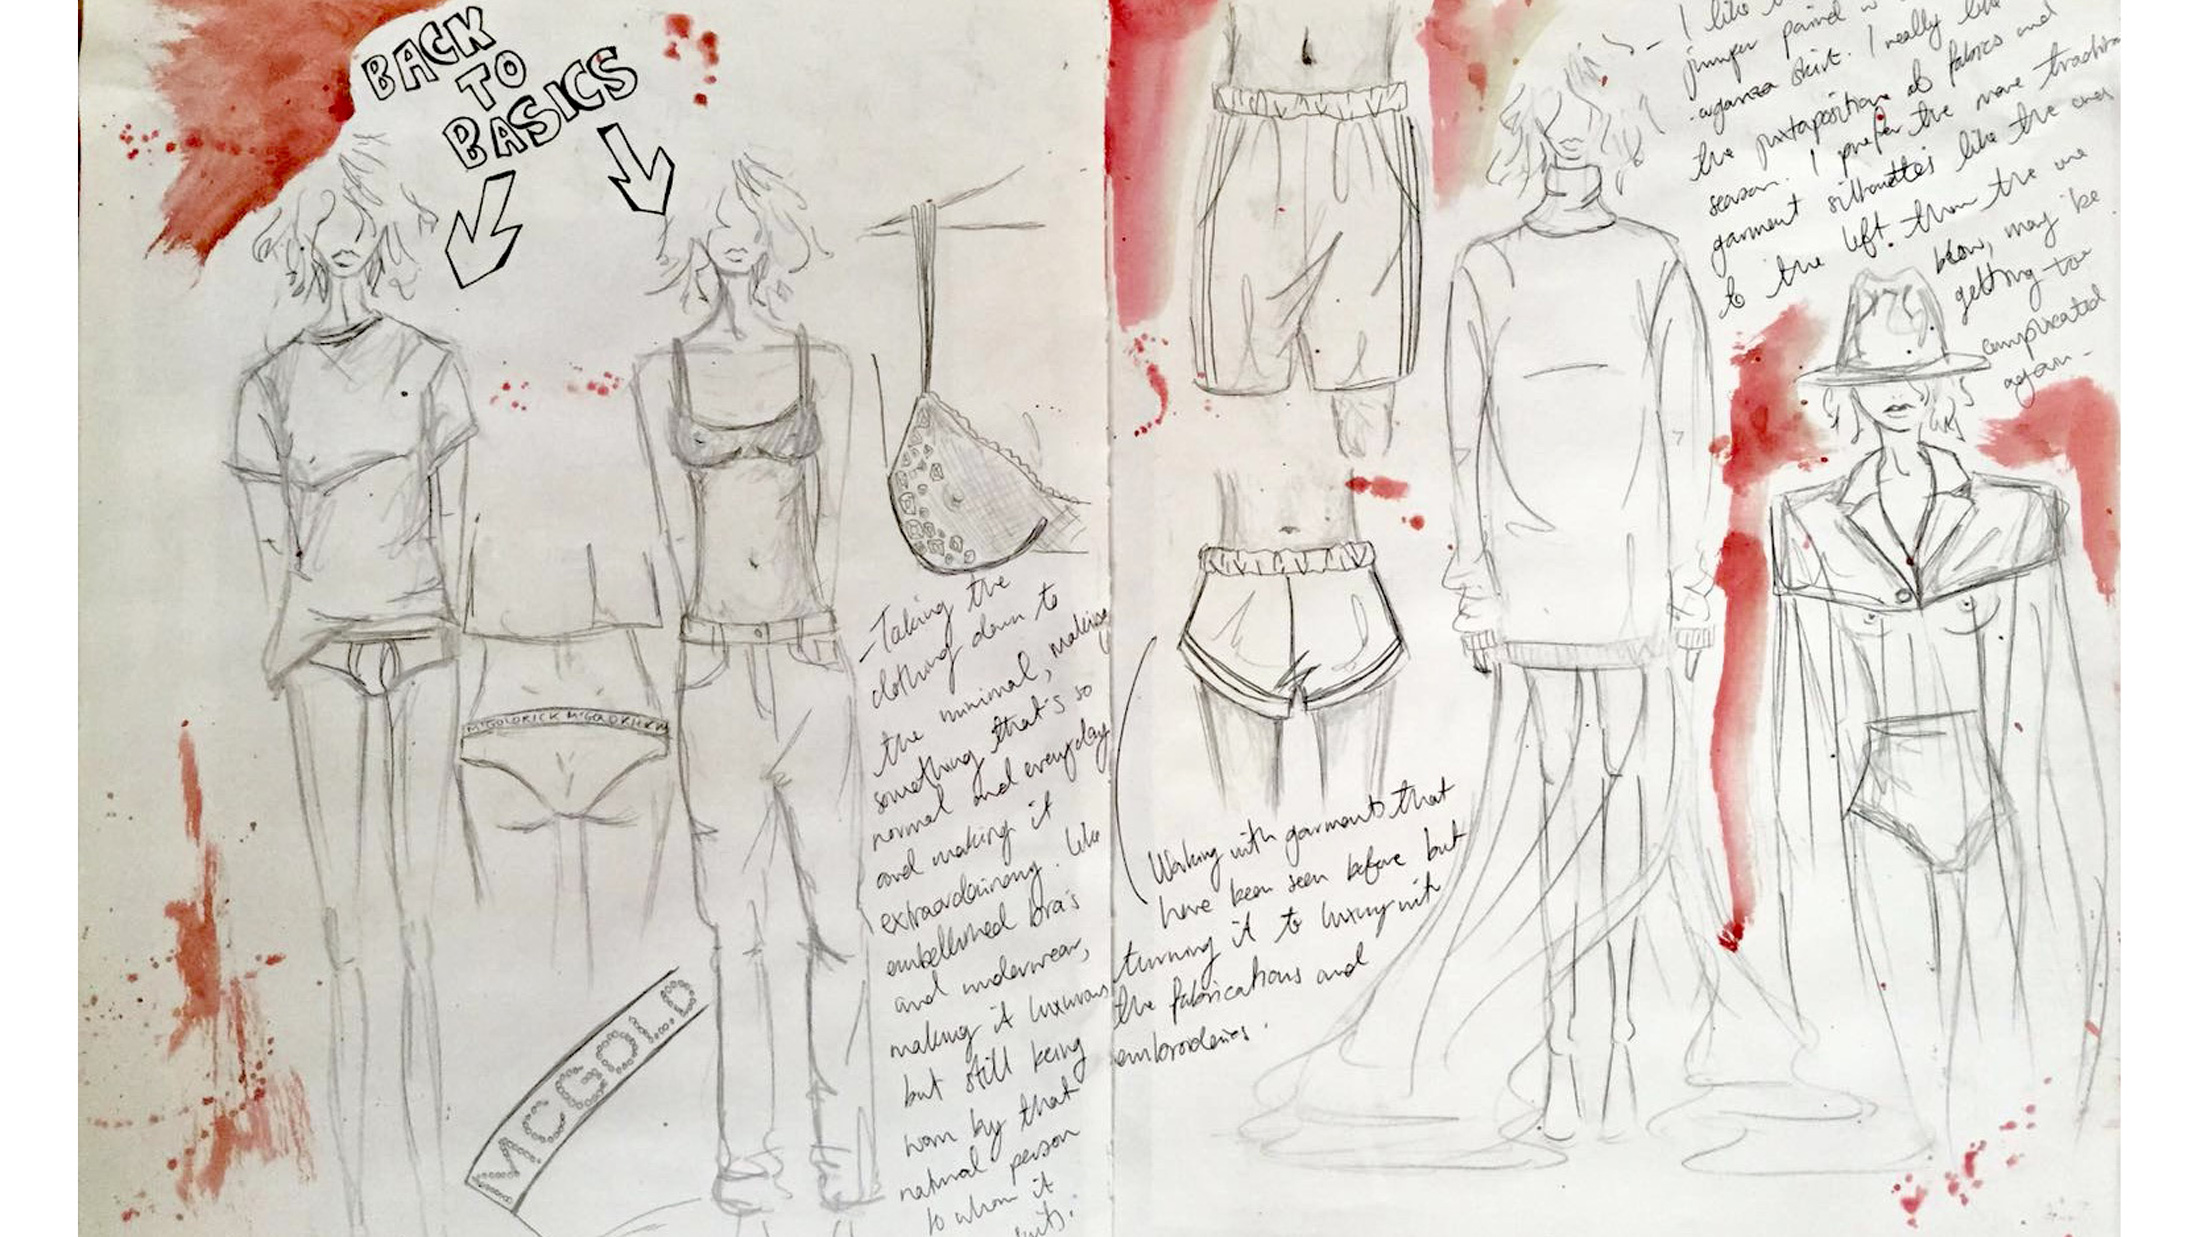 BACK
TO
BASICS
M'GOLDRICK M'GOLDRICK
MCGOLD
- Taking the
clothing down to
the minimal, making
something that's so
normal and everyday
and making it
extraordinary. like
embellished bra's
and underwear,
making it luxurious
but still being
worn by that
natural person
to whom it
suits.
Working with garments that
have been seen before but
turning it to luxury wit
the fabrications and
embroideries.
- I like
jumper paired
organza skirt. I really like
the juxtaposition of fabrics and
season. I prefer the more
garment silhouettes like the ones
to the left. than the one
below, may be
getting too
complicated
again -